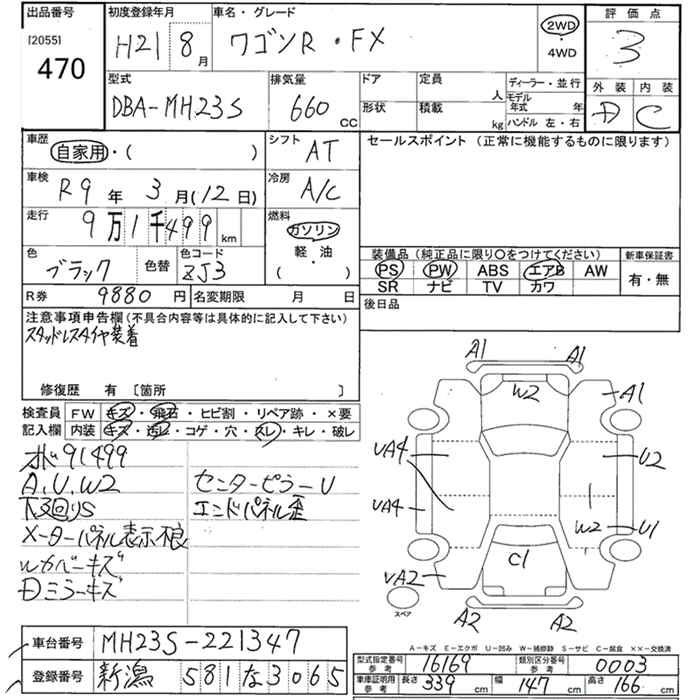 出品番号
[2055]
470
初度登録年月
H21 8月
車名・グレード
ワゴンR・FX
2WD
・
4WD
評価点
3
外装 内装
D C
型式
DBA-MH23S
排気量
660 CC
ドア
形状
定員 人
積載 kg
ディーラー・並行
モデル年式 年
ハンドル 左・右
車歴
自家用・( )
シフト
AT
車検
R9年 3月(12日)
冷房
A/C
走行
9万1千499 km
燃料
ガソリン
軽・油
( )
色
ブラック 色替
色コード
ZJ3
R券 9880円 名変期限 月 日
セールスポイント(正常に機能するものに限ります)
装備品(純正品に限り○をつけてください)
PS PW ABS エアB AW
SR ナビ TV カワ
新車保証書
有・無
後日品
注意事項申告欄(不具合内容等は具体的に記入して下さい)
スタッドレスタイヤ装着
修復歴 有 〔箇所 〕
検査員記入欄
FW キズ・飛石・ヒビ割・リペア跡・×要
内装 キズ・汚レ・コゲ・穴・スレ・キレ・破レ
91499
A.U.W2
下廻りS
メーターパネル表示不良
Wカバーキズ
Dミラーキズ
センターピラーU
エンドパネル歪
A1 A1
W2 A1
UA4 U2
UA4 W2 U1
C1
UA2
スペア
A2 A2
A-キズ E-エクボ U-凹み W-補修跡 S-サビ C-腐食 ××-交換済
車台番号 MH23S-221347
登録番号 新潟 581 な 3065
型式指定番号 参考 16169
類別区分番号 参考 0003
車庫証明用 参考 長さ 339 cm 幅 147 cm 高さ 166 cm